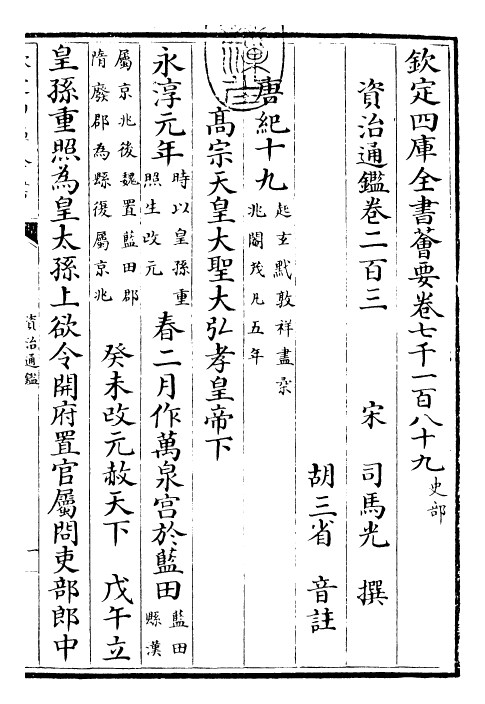 欽定四庫全書薈要卷七千一百八十九 史部
資治通鑑卷二百三
宋 司馬光 撰
胡三省 音註
唐紀十九 起玄黓敦牂盡柔
兆閹茂凡五年
高宗天皇大聖大弘孝皇帝下
永淳元年 時以皇孫重
照生改元 春二月作萬泉宮於藍田 藍田
縣漢
屬京兆後魏置藍田郡
隋廢郡為縣復屬京兆 癸未改元赦天下 戊午立
皇孫重照為皇太孫上欲令開府置官屬問吏部郎中
資治通鑑
一